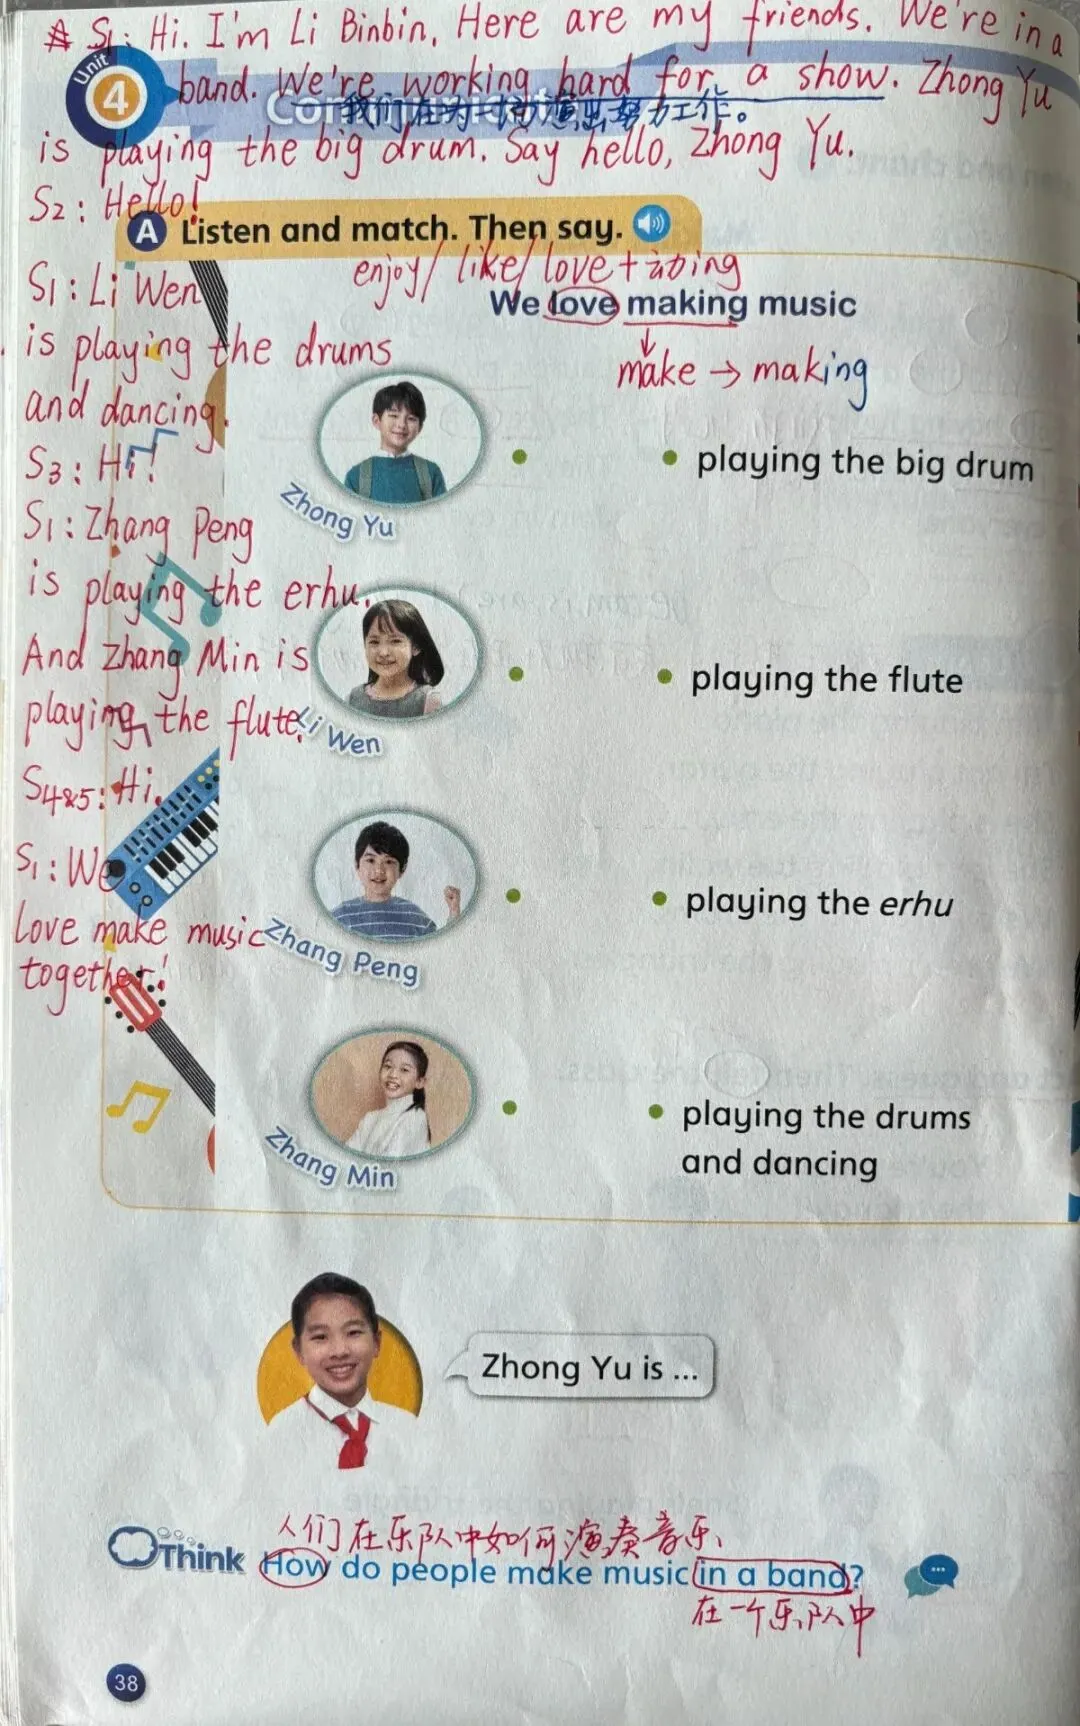 S1: Hi. I'm Li Binbin. Here are my friends. We're in a
band. We're working hard for a show. Zhong Yu
我们在为一场演出努力工作。
is playing the big drum. Say hello, Zhong Yu.
S2: Hello!
Unit
4
A Listen and match. Then say.
S1: Li Wen
is playing the drums
and dancing.
S3: Hi!
S1: Zhang Peng
is playing the erhu.
And Zhang Min is
playing the flute.
S4&5: Hi.
S1: We
Love make music
together!
enjoy/ like/ love + 动ing
We love making music
make → making
Zhong Yu
playing the big drum
Li Wen
playing the flute
Zhang Peng
playing the erhu
Zhang Min
playing the drums
and dancing
Zhong Yu is ...
人们在乐队中如何演奏音乐、
Think How do people make music in a band?
在一个乐队中
38